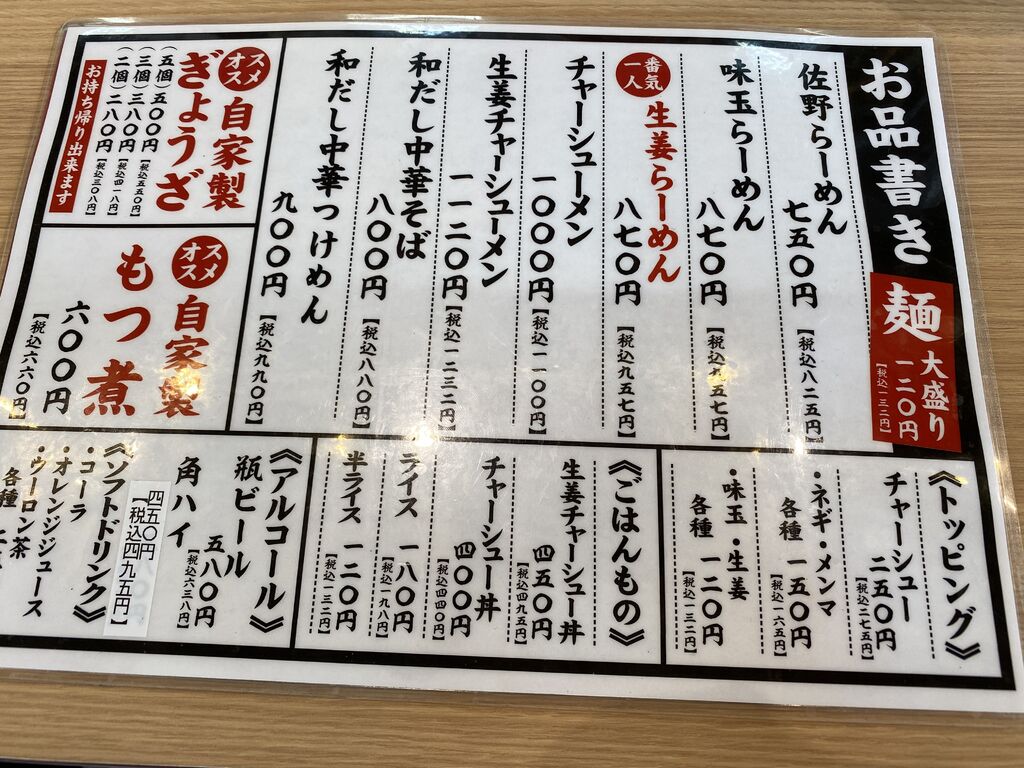 お品書き
麺
大盛り
一二〇円
【税込一三二円】
佐野らーめん
七五〇円
【税込八二五円】
味玉らーめん
八七〇円
【税込九五七円】
一番人気
生姜らーめん
八七〇円
【税込九五七円】
チャーシューメン
一〇〇〇円
【税込一一〇〇円】
生姜チャーシューメン
一一二〇円
【税込一二三二円】
和だし中華そば
八〇〇円
【税込八八〇円】
和だし中華つけめん
九〇〇円
【税込九九〇円】
オススメ
自家製
ぎょうざ
(五個)五〇〇円【税込五五〇円】
(三個)三八〇円【税込四一八円】
(二個)二八〇円【税込三〇八円】
お持ち帰り出来ます
オススメ
自家製
もつ煮
六〇〇円
【税込六六〇円】
《トッピング》
チャーシュー
二五〇円
【税込二七五円】
・ネギ・メンマ
各種 一五〇円
【税込一六五円】
・味玉・生姜
各種 一二〇円
【税込一三二円】
《ごはんもの》
生姜チャーシュー丼
四五〇円
【税込四九五円】
チャーシュー丼
四〇〇円
【税込四四〇円】
ライス 一八〇円
【税込一九八円】
半ライス 一二〇円
【税込一三二円】
《アルコール》
瓶ビール
五八〇円
【税込六三八円】
角ハイ
四五〇円
【税込四九五円】
《ソフトドリンク》
・コーラ
・オレンジジュース
・ウーロン茶
各種